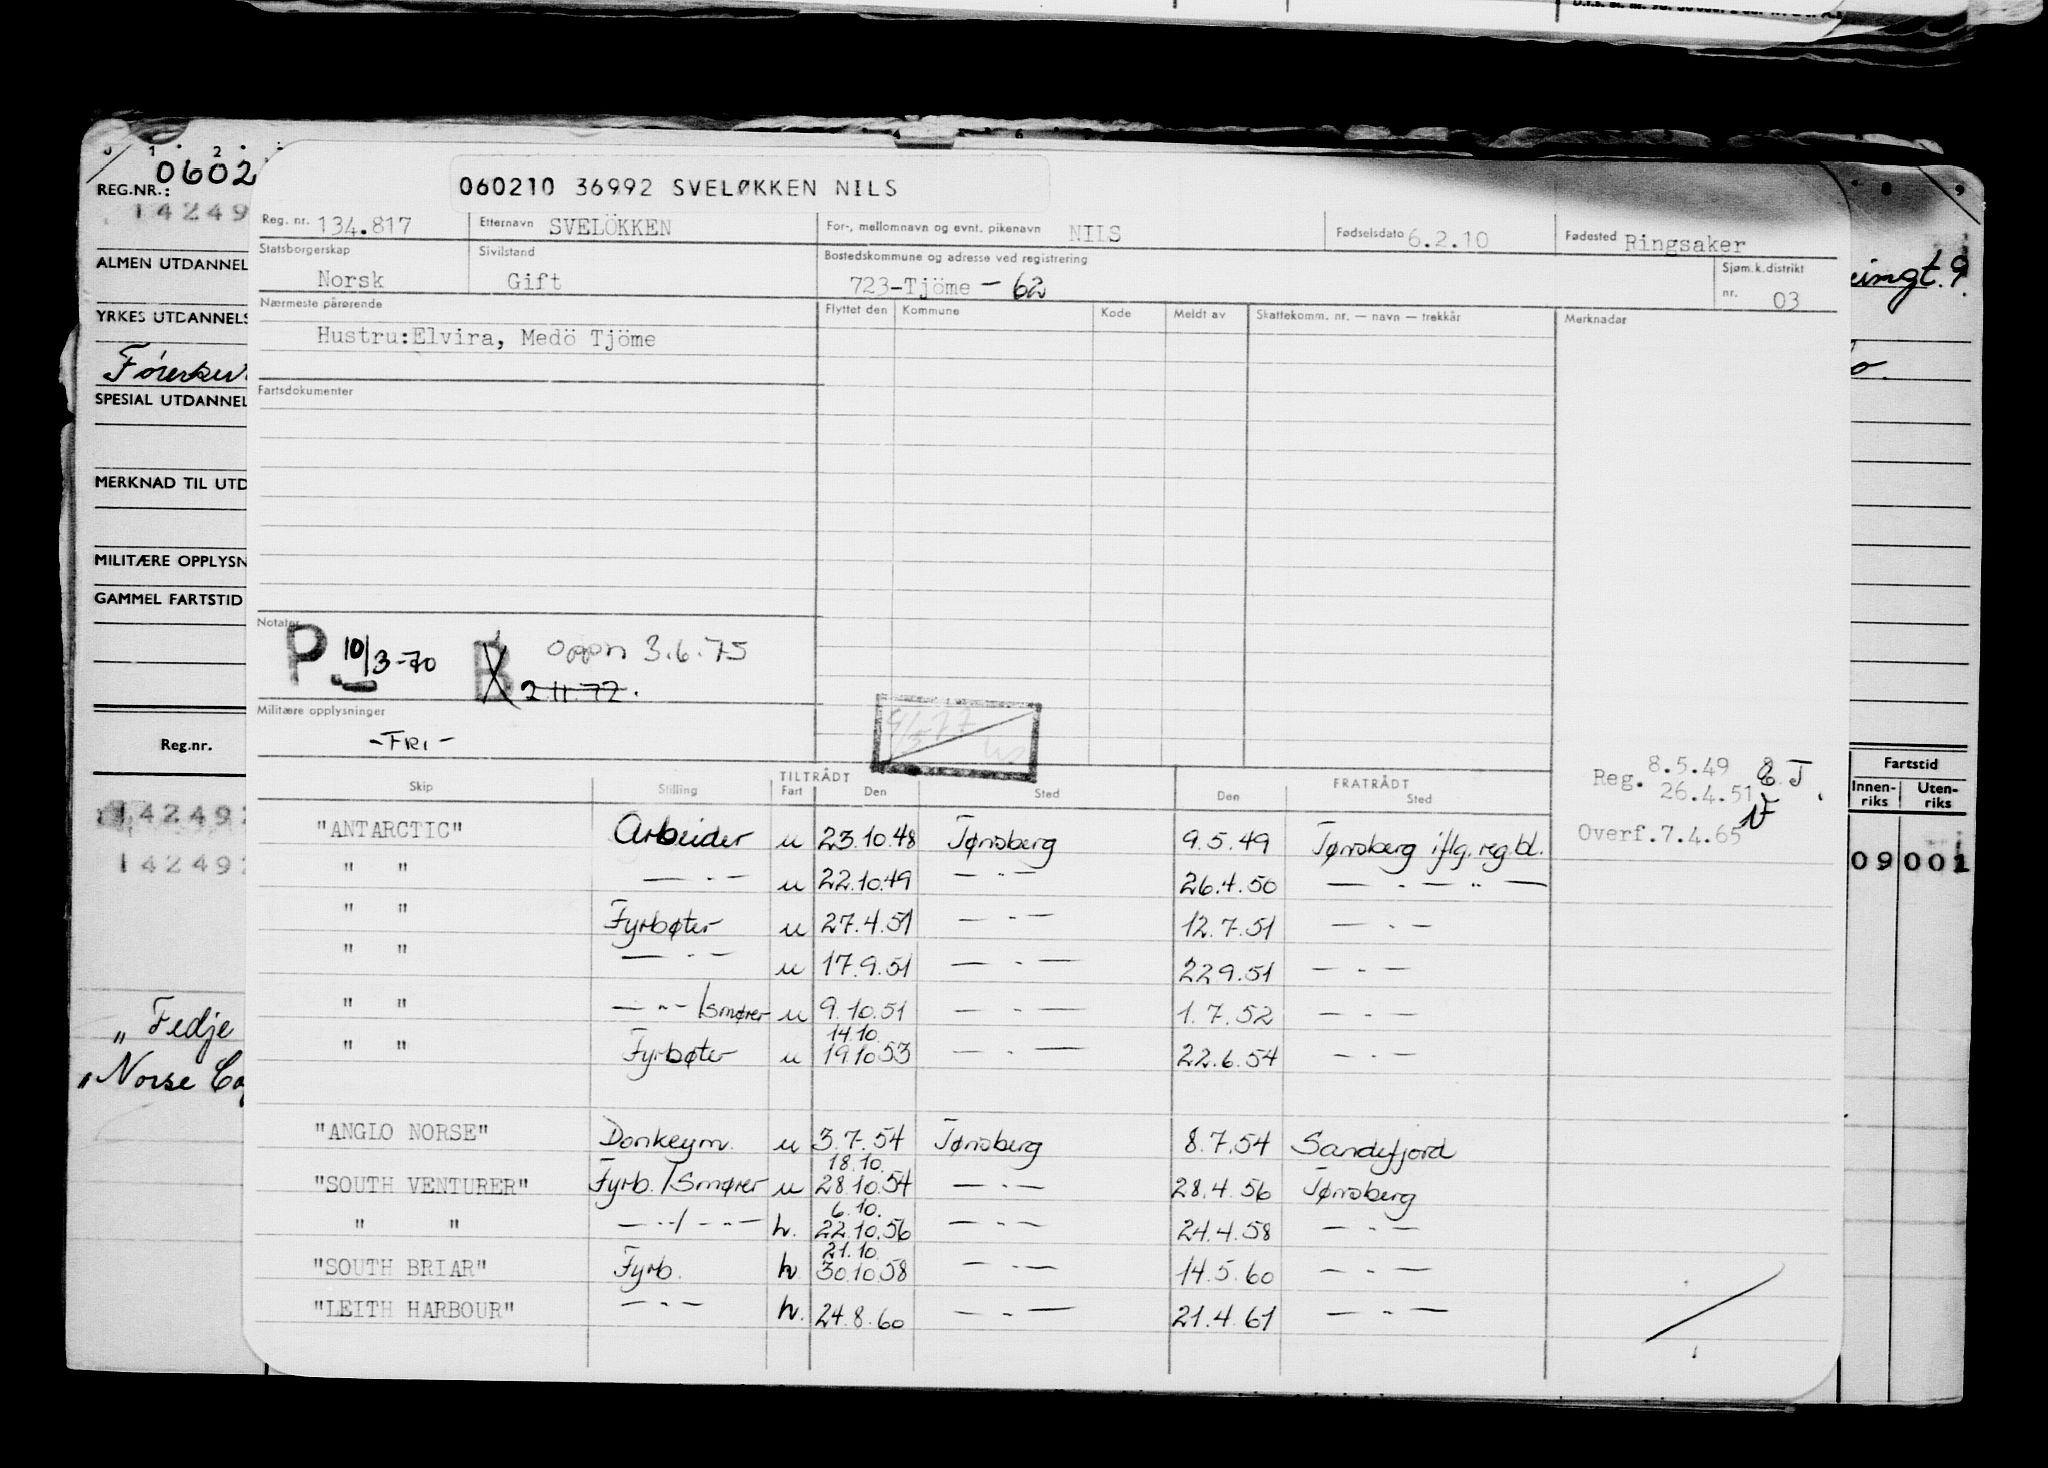 0 1 2
0602
REG.NR.:
14249
ALMEN UTDANNEL
YRKES UTDANNELS
SPESIAL UTDANNEL
MERKNAD TIL UTD
MILITÆRE OPPLYSN
GAMMEL FARTSTID
Reg.nr.
142492
142492
„ Fedje
„Norse Ca
060210 36992 SVELØKKEN NILS
Reg. nr. 134.817 Etternavn SVELÖKKEN For-, mellomnavn og evnt. pikenavn NILS Fødselsdato 6.2.10 Fødested Ringsaker
Statsborgerskap Norsk Sivilstand Gift Bostedskommune og adresse ved registrering 723-Tjöme - 62 Sjøm.k.distrikt nr. 03
Nærmeste pårørende Flyttet den Kommune Kode Meldt av Skattekomm. nr. — navn — trekkår Merknader
Hustru:Elvira, Medö Tjöme
Fartsdokumenter
Notater
P. 10/3-70 B oppn 3.6.75
2.11.72.
Militære opplysninger
-FRI-
Reg. 8.5.49
26.4.51
Overf.7.4.65
TILTRÅDT FRATRÅDT
Skip Stilling Fart Den Sted Den Sted
"ANTARCTIC" Arbeider u 23.10.48 Tønsberg 9.5.49 Tønsberg iflg. reg bl.
" " — . — u 22.10.49 — . — 26.4.50 — . — .. —
" " Fyrbøter u 27.4.51 — . — 12.7.51 — . —
" " — . — u 17.9.51 — . — 22.9.51 — . —
" " — " — /smører u 9.10.51 — . — 1.7.52 — . —
14.10.
" " Fyrbøter u 19.10.53 — . — 22.6.54 — . —
"ANGLO NORSE" Donkeym. u 3.7.54 Tønsberg 8.7.54 Sandefjord
18.10.
"SOUTH VENTURER" Fyrb./Smører u 28.10.54 — . — 28.4.56 Tønsberg
6.10.
" " — .. / — .. — h. 22.10.56 — . — 24.4.58 — . —
21.10.
"SOUTH BRIAR" Fyrb. h 30.10.58 — . — 14.5.60 — . —
"LEITH HARBOUR" — . — h. 24.8.60 — . — 21.4.61 — . —
8 9
Fartstid
Innen-riks Uten-riks
09 001